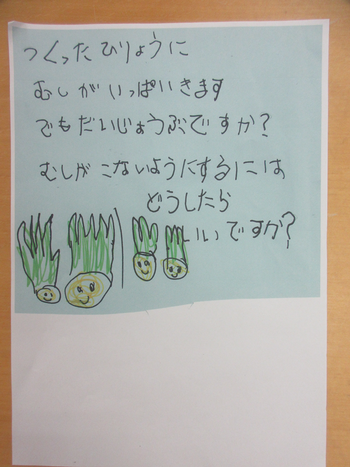 つくったひりょうに
むしがいっぱいきます
でもだいじょうぶですか？
むしがこないようにするには
どうしたら
いいですか？